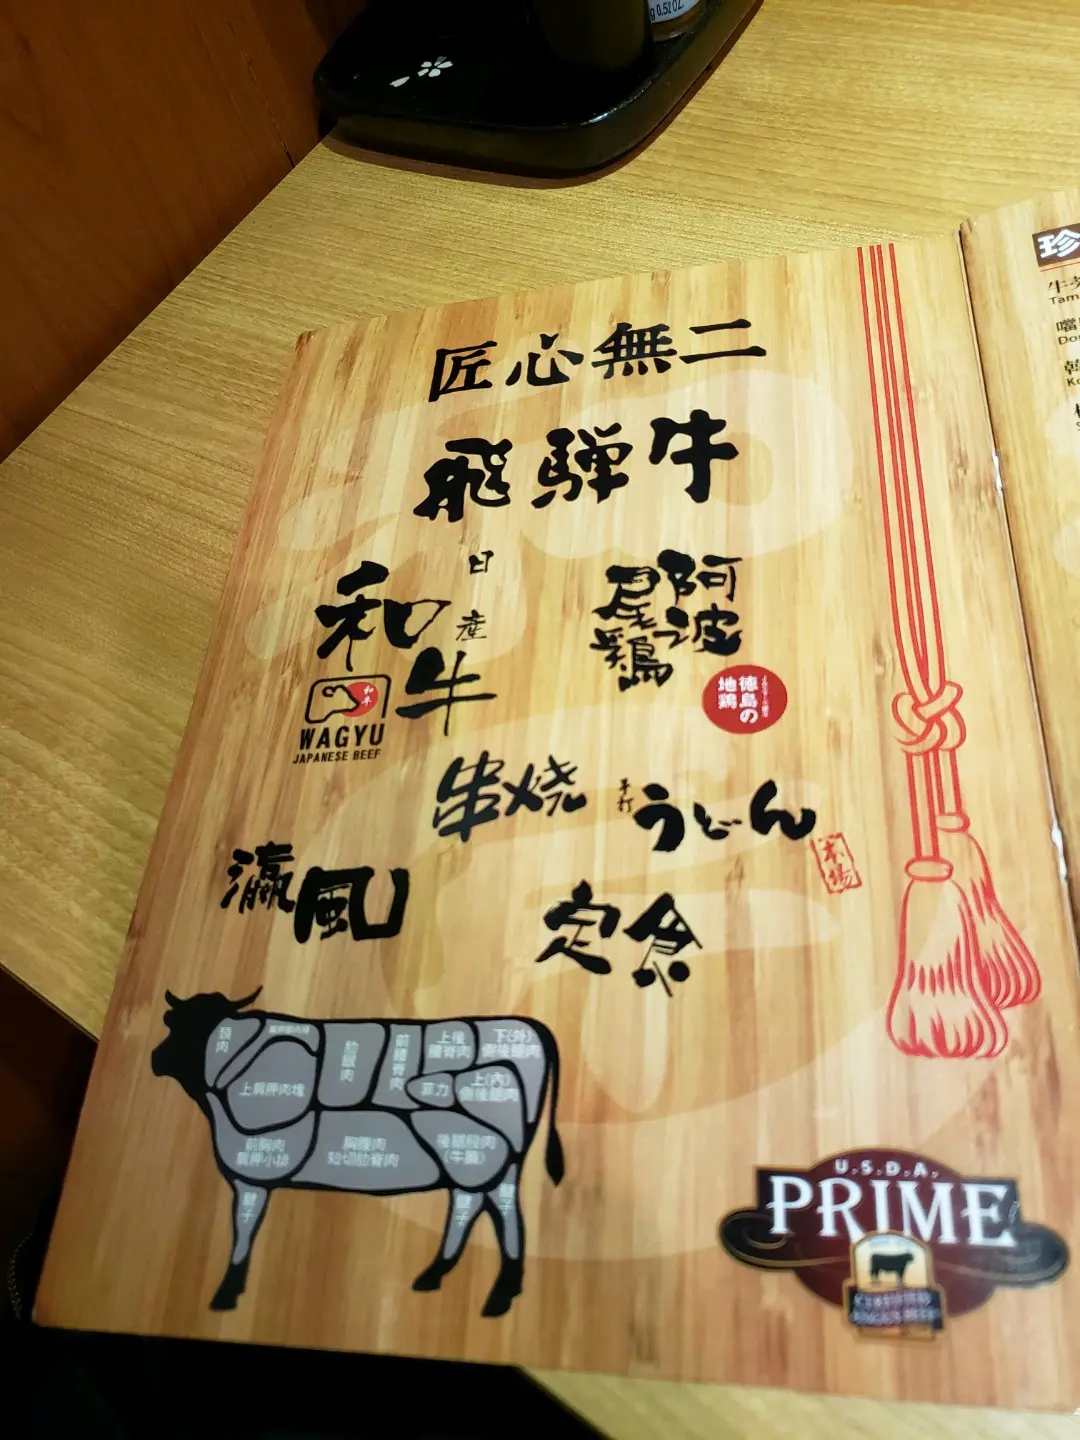 g 0.52 OZ.
匠心無二
飛騨牛
日産
和牛
和牛
WAGYU
JAPANESE BEEF
阿波
尾鶏
徳島の
地鶏
串焼
手打
うどん
本場
瀛風
定食
頸肉
上肩胛肉塊
肋眼肉
前腰脊肉
上後
腰脊肉
下(外)
側後腿肉
菲力
上(內)
側後腿肉
前胸肉
肩胛小排
胸腹肉
短切肋脊肉
後腿股肉
(牛腩)
腱子
腱子
腱子
U.S.D.A.
PRIME
CERTIFIED
ANGUS BEEF
珍
牛
Tam
噹
Do
韓